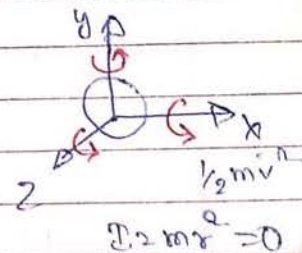 y
x
z
1/2 mv²
I = mr² = 0